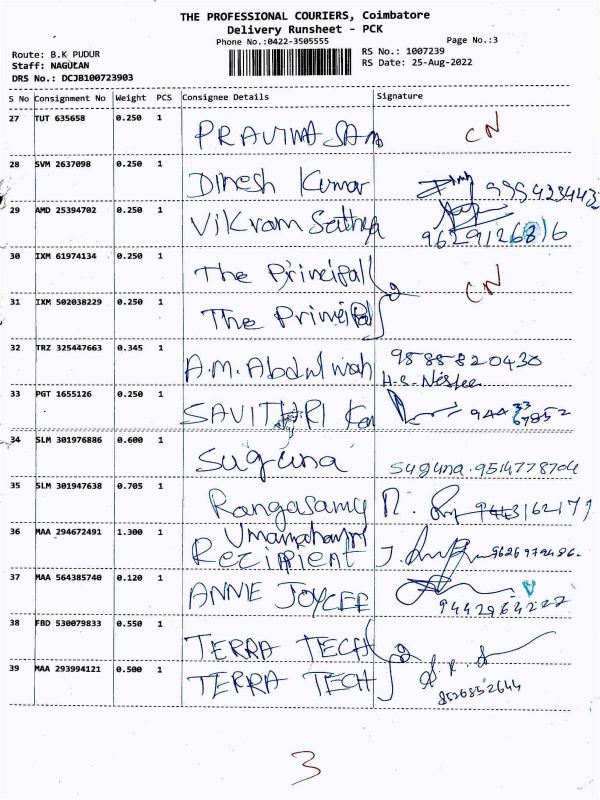 THE PROFESSIONAL COURIERS, Coimbatore
Delivery Runsheet - PCK
Phone No.:0422-3505555
Page No.:3
Route: B.K PUDUR
RS No.: 1007239
Staff: NAGULAN
RS Date: 25-Aug-2022
DRS No.: DCJB100723903
S No Consignment No Weight PCS Consignee Details Signature
27 TUT 635658 0.250 1 PRAVINA SAM CN
28 SVM 2637098 0.250 1 Dinesh Kumar
29 AMD 25394702 0.250 1 Vikram Sathya
30 IXM 61974134 0.250 1 The Principal
2 CN
31 IXM 502038229 0.250 1 The Principal
32 TRZ 325447663 0.345 1 A.M. Abdul wah
33 PGT 1655126 0.250 1 SAVITHRI
34 SLM 301976886 0.600 1 Suguna Suguna. 9514778704
35 SLM 301947638 0.705 1 Rangasamy
36 MAA 294672491 1.300 1 Recipient 9626979486.
37 MAA 564385740 0.120 1 ANNIE JOYCEE
38 FBD 530079833 0.550 1 TERRA TECH
2
39 MAA 293994121 0.500 1 TERRA TECH 8526852644
3